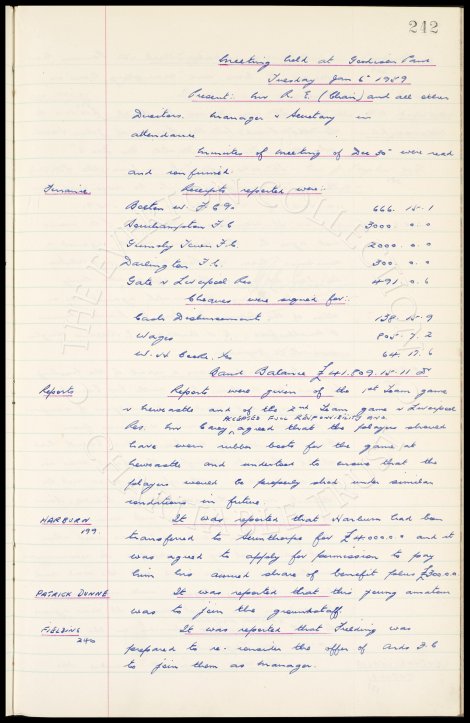 242
Meeting held at Goodison Park
Tuesday Jan 6th 1959
Present:- Mr R. E. (Chair) and all other
Directors. Manager & Secretary in
attendance
Minutes of meeting of Dec 30th were read
and confirmed.
Finance Receipts reported were:-
Bolton W. F.C. 666. 15. 1
Southampton F.C 3000. 0. 0
Grimsby Town F.C. 2000. 0. 0
Darlington F.C. 300. 0. 0
Gate v Liverpool Res 491. 0. 6
Cheques were signed for:-
Cash Disbursement 138. 15. 9
Wages 805. 7. 2
64. 17. 6
Bank Balance £41.809. 15. 11
Reports Reports were given of the 1st Team game
v Newcastle and of the 2nd Team game v Liverpool
ACCEPTED FULL RESPONSIBILITY AND
Res. Mr Carey agreed that the players should
have worn rubber boots for the game at
Newcastle and undertook to ensure that the
players would be properly shod under similar
conditions in future.
HARBURN It was reported that Harburn had been
199. transferred to Scunthorpe for £4000.0.0 and it
was agreed to apply for permission to pay
him his accrued share of benefit plus
PATRICK DUNNE It was reported that this young amateur
was to join the groundstaff.
FIELDING It was reported that Fielding was
240 prepared to re-consider the offer of Ards F.C
to join them as manager.